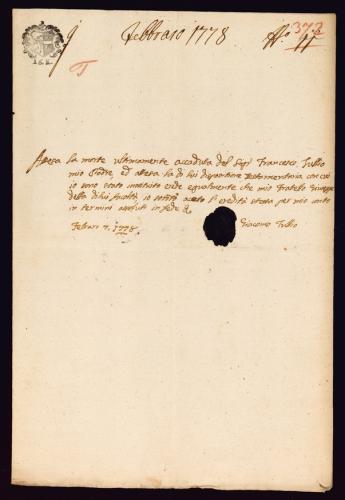 9 Febbraro 1778 No 99
373
Attesa la morte ultimamente accaduta del Sigr Francesco Tullio
mio Padre, ed attesa la di lui dispositione Testamentaria con cui
io sono stato instituito erede egualmente che mio Fratello Giuseppe
della di lui facoltà, io accetto l'eredità stessa per mio conto
in termini in fede
Febraro 7. 1778
Giacomo Tullio